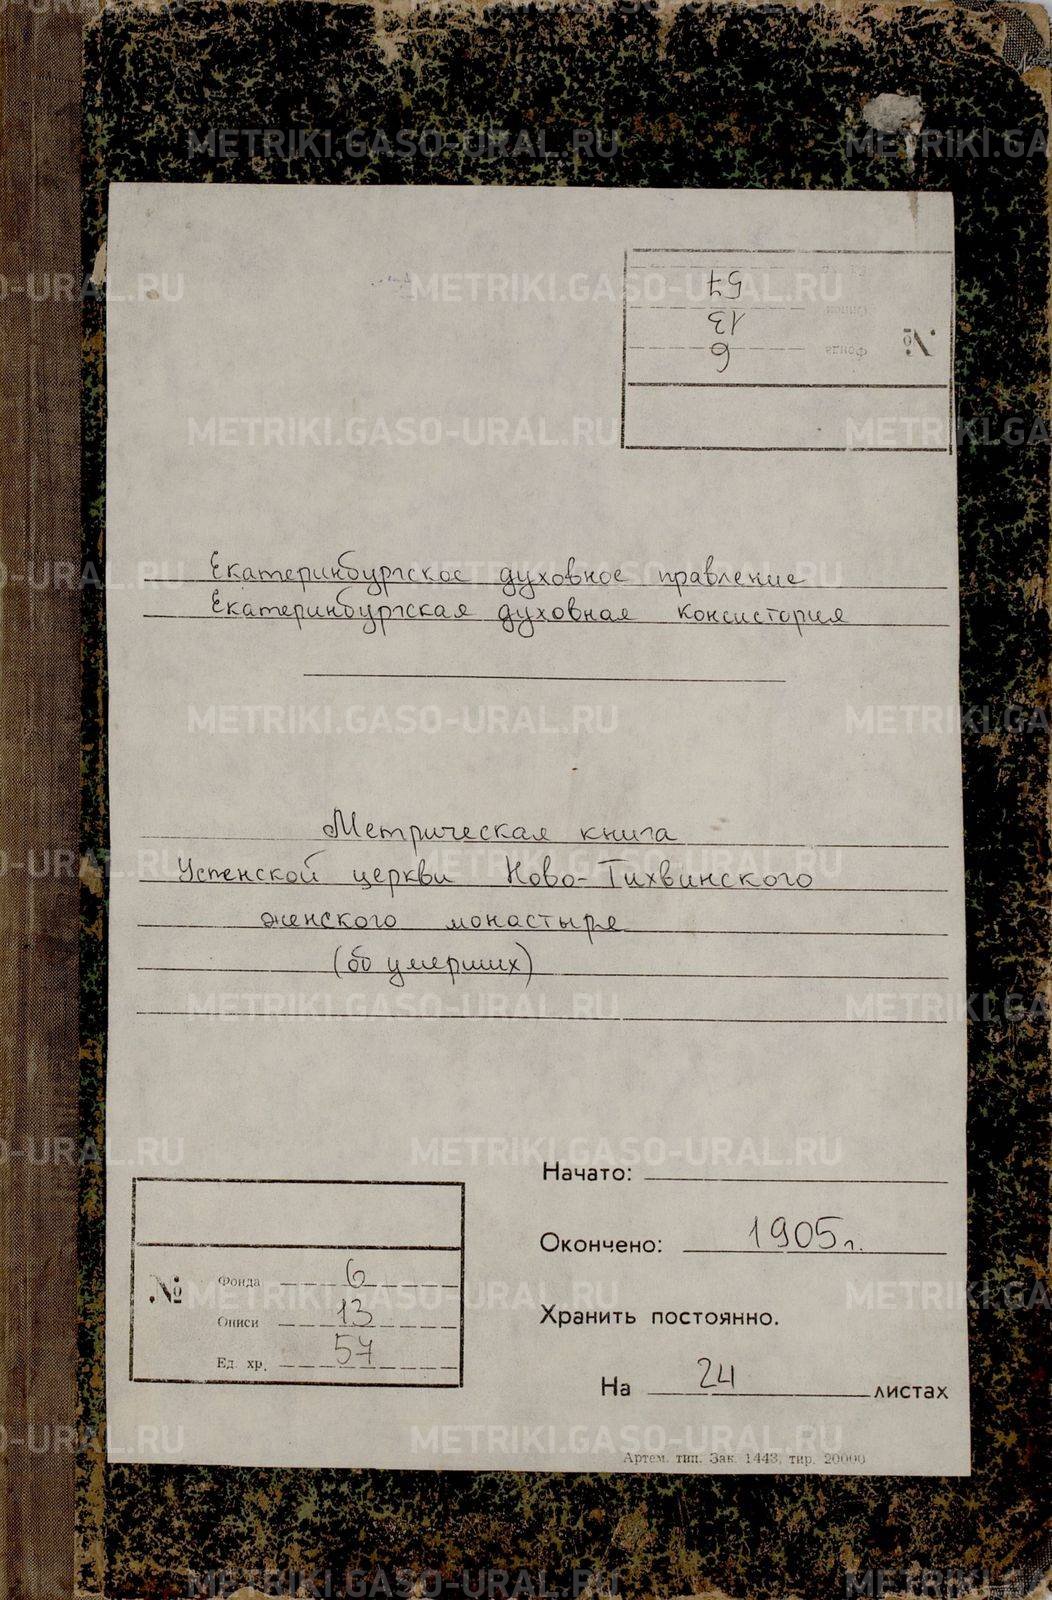 57
13
Фонда 6
№
Екатеринбургское духовное правление
Екатеринбургская духовная консистория
Метрическая книга
Успенской церкви Ново-Тихвинского
женского монастыря
(об умерших)
Начато:
Окончено: 1905 г.
Хранить постоянно.
На 24 листах
№
Фонда 6
Описи 13
Ед. хр. 57
Артем. тип. Зак. 1443, тир. 20000
METRIKI.GASO-URAL.RU